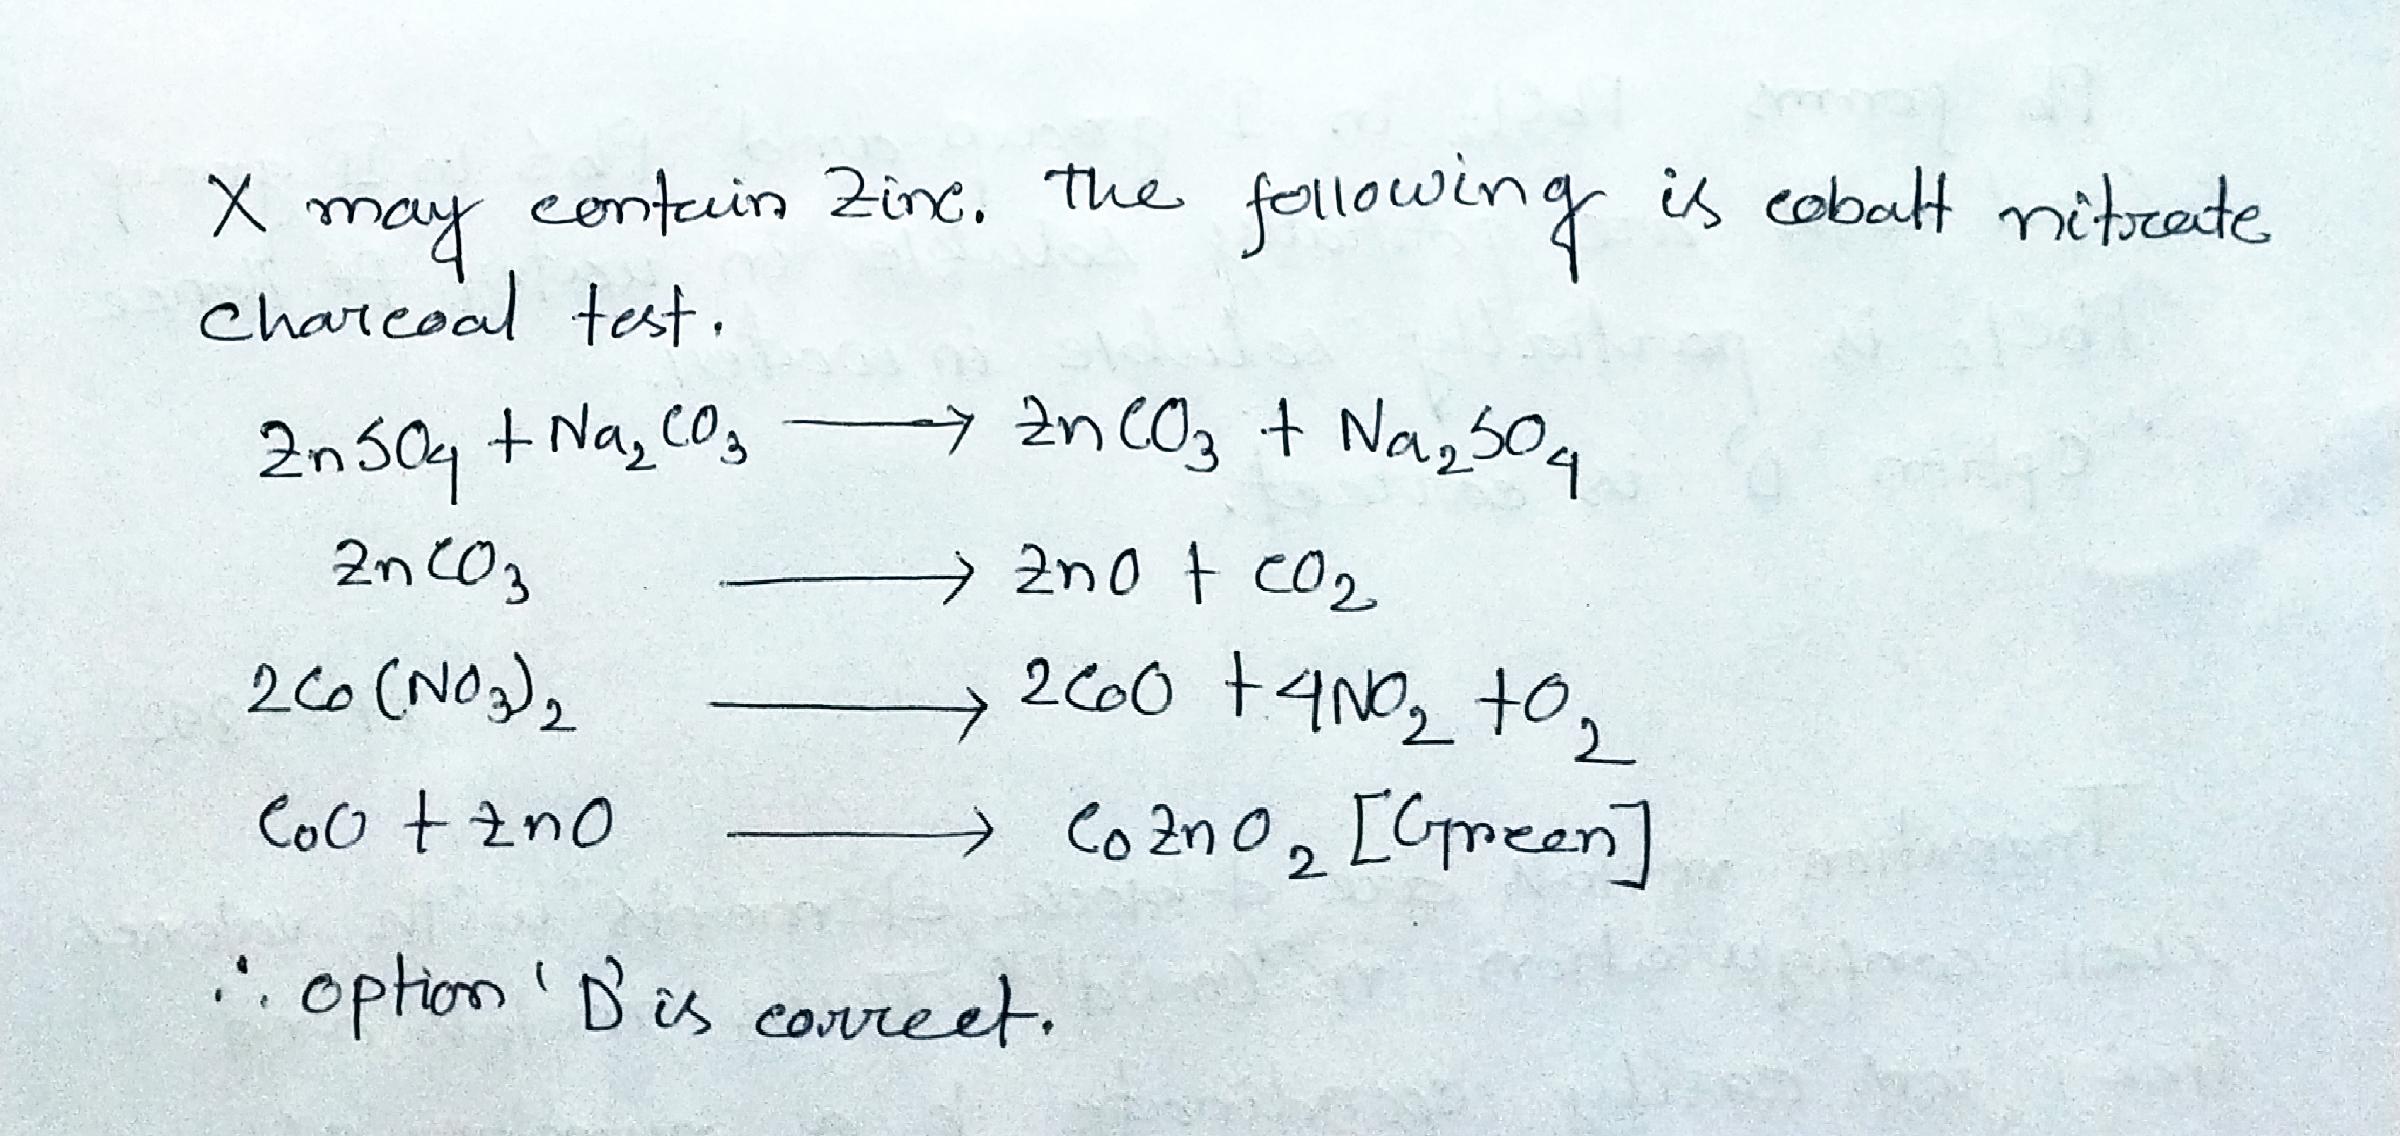 X may contain Zinc. The following is cobalt nitrate
charcoal test.
ZnSO4 + Na2CO3 → ZnCO3 + Na2SO4
ZnCO3 → ZnO + CO2
2Co(NO3)2 → 2CoO + 4NO2 + O2
CoO + ZnO → CoZnO2 [Green]
∴ option 'D' is correct.